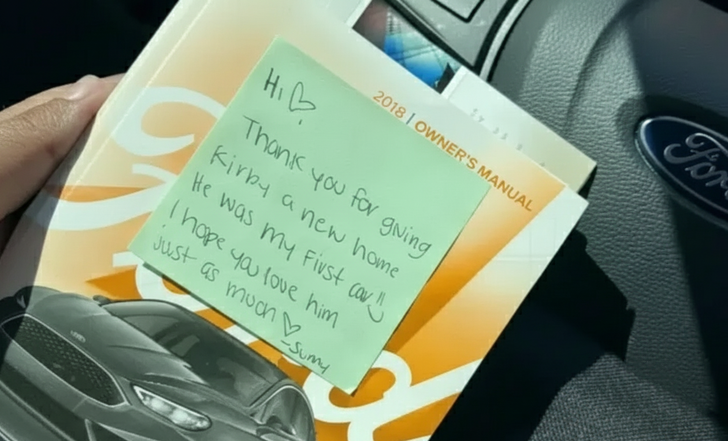 Hi ♡
Thank you for giving
Kirby a new home
He was my first car :)
I hope you love him
just as much ♡
-Sunny
2018 | OWNER'S MANUAL
Ford